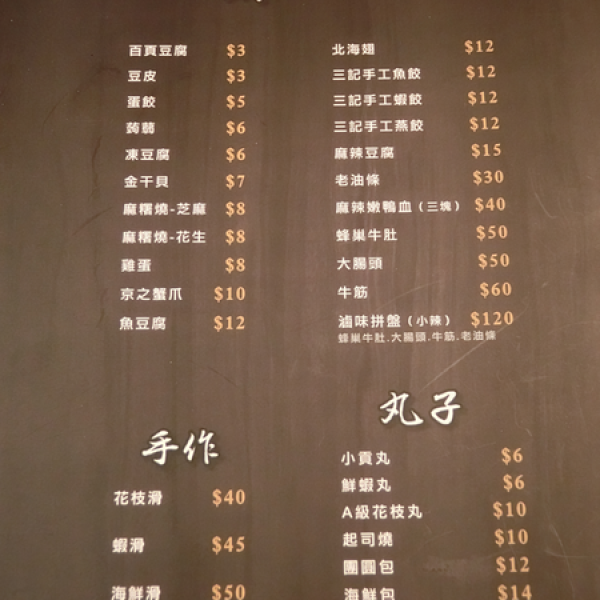 百頁豆腐 $3
豆皮 $3
蛋餃 $5
蒟蒻 $6
凍豆腐 $6
金干貝 $7
麻糬燒-芝麻 $8
麻糬燒-花生 $8
雞蛋 $8
京之蟹爪 $10
魚豆腐 $12
手作
花枝滑 $40
蝦滑 $45
海鮮滑 $50
北海翅 $12
三記手工魚餃 $12
三記手工蝦餃 $12
三記手工燕餃 $12
麻辣豆腐 $15
老油條 $30
麻辣嫩鴨血(三塊) $40
蜂巢牛肚 $50
大腸頭 $50
牛筋 $60
滷味拼盤(小辣) $120
蜂巢牛肚.大腸頭.牛筋.老油條
丸子
小貢丸 $6
鮮蝦丸 $6
A級花枝丸 $10
起司燒 $10
團圓包 $12
海鮮包 $14